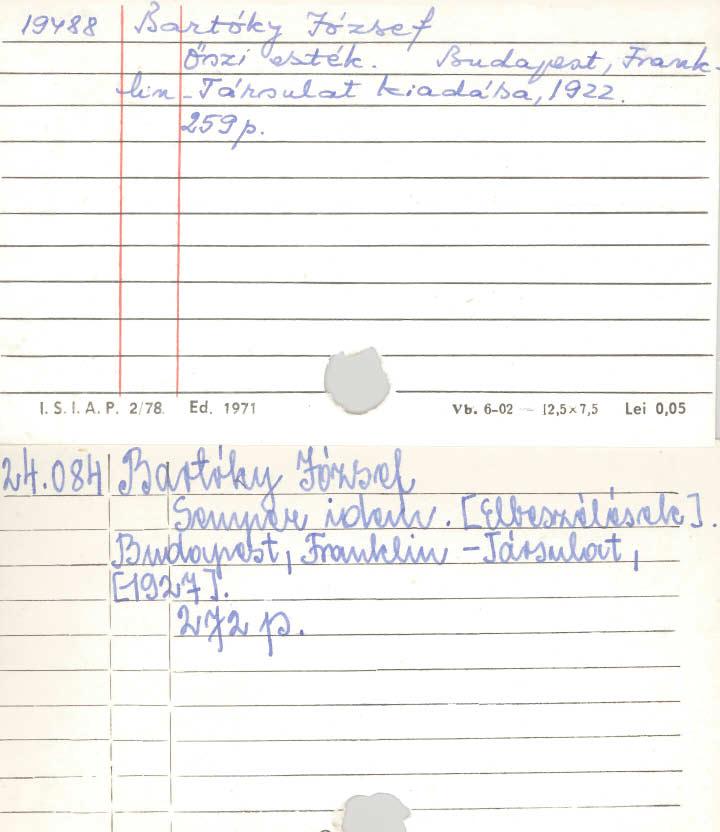 19488 Bartóky József
Őszi esték. Budapest, Frank-
lin-Társulat kiadása, 1922.
259 p.
I. S. I. A. P. 2/78. Ed. 1971 Vb. 6-02 — 12,5×7,5 Lei 0,05
24.084 Bartóky József
Semper idem. [Elbeszélések].
Budapest, Franklin-Társulat,
[1927].
272 p.